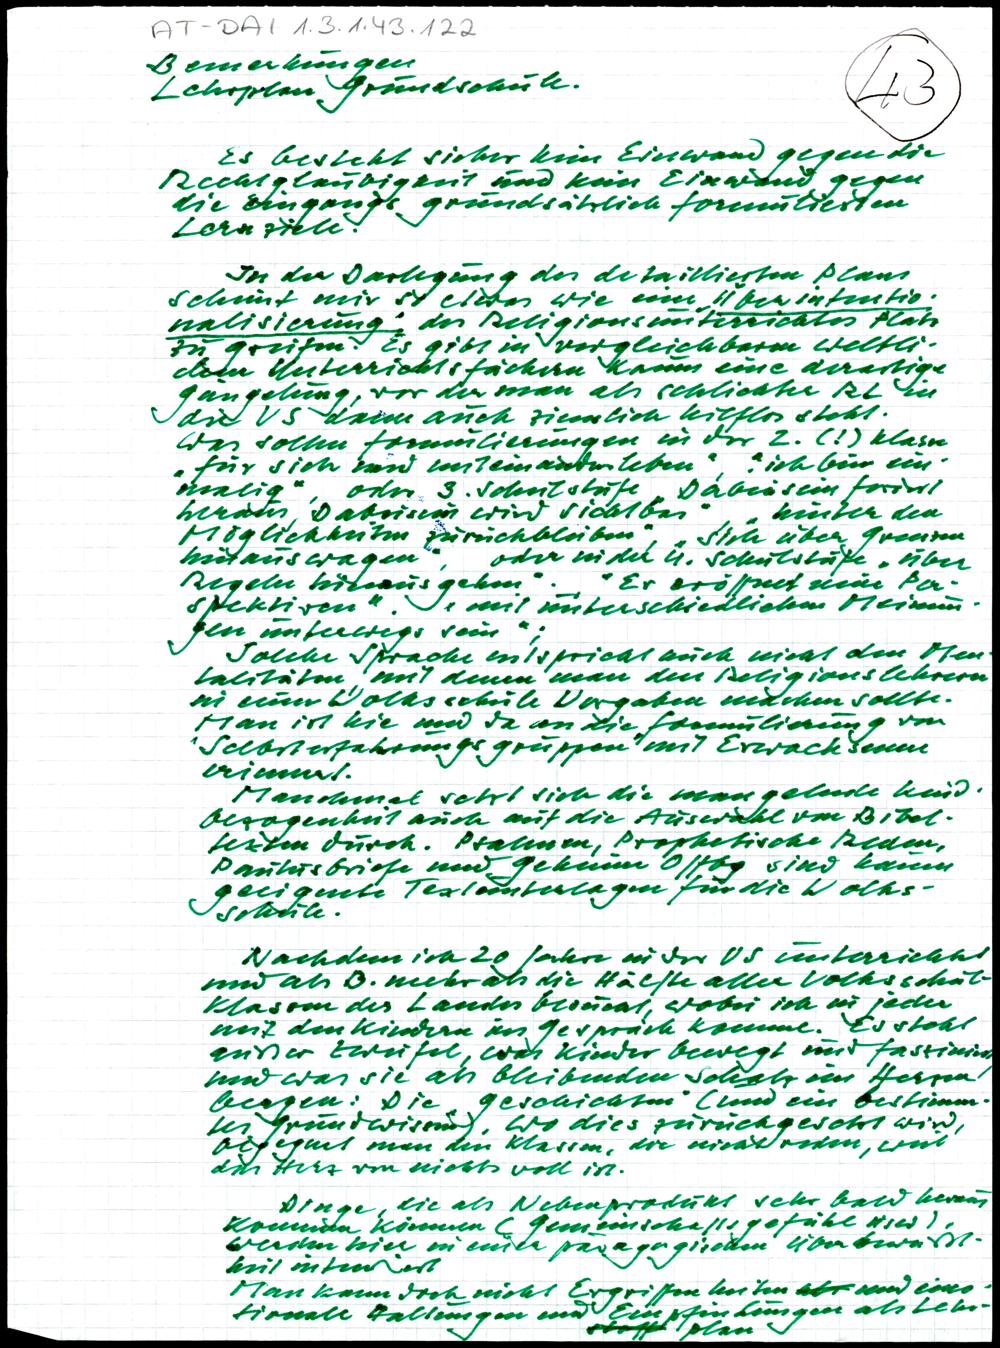 AT-DAI 1.3.1.43.122
43
Bemerkungen
Lehrplan Grundschule.
Es besteht sicher kein Einwand gegen die
Rechtgläubigkeit und kein Einwand gegen
die eingangs grundsätzlich formulierten
Lernziele.
In der Darlegung des detaillierten Plans
scheint mir so etwas wie eine "Überintentio-
nalisierung" des Religionsunterrichtes Platz
zu greifen. Es gibt in vergleichbaren weltli-
chen Unterrichtsfächern kaum eine derartige
Gängelung, vor der man als schlichter RL in
der VS dann auch ziemlich hilflos steht.
Was sollen Formulierungen in der 2. (!) Klasse
"für sich und miteinander leben", "ich bin ein-
malig", oder 3. Schulstufe "Dabeisein fordert
heraus, Dabeisein wird sichtbar" "hinter den
Möglichkeiten zurückbleiben", "Sich über Grenzen
hinauswagen", oder in der 4. Schulstufe "über
Regeln hinausgehen". "Es eröffnet neue Per-
spektiven". "mit unterschiedlichen Meinun-
gen unterwegs sein";
Solche Sprache entspricht auch nicht den Men-
talitäten mit denen man den Religionslehrern
in einer Volksschule Vorgaben machen sollte.
Man ist hie und da an die Formulierung von
"Selbsterfahrungsgruppen" mit Erwachsenen
erinnert.
Manchmal setzt sich die mangelnde Kind-
bezogenheit auch auf die Auswahl von Bibel-
texten durch. Psalmen, Prophetische Reden,
Paulusbriefe und Geheime Offbg sind kaum
geeignete Textunterlagen für die Volks-
schule.
Nachdem ich 20 Jahre in der VS unterrichtet
und als B. mehr als die Hälfte aller Volksschul-
klassen des Landes besucht, wobei ich in jeder
mit den Kindern ins Gespräch komme. Es steht
außer Zweifel, was Kinder bewegt und fasziniert,
und was sie als bleibenden Schatz im Herzen
bergen: Die Geschichten (und ein bestimm-
tes Grundwissen). Wo dies zurückgesetzt wird,
begegnet man den Klassen, die nicht reden, weil
das Herz von nichts voll ist.
Dinge, die als Nebenprodukt sehr bald heraus
kommen können (Gemeinschaftsgefühl usw),
werden hier in einer pädagogischen Überbewusst-
heit intendiert
Man kann doch nicht Ergriffenheiten und emo-
tionale Haltungen und Empfindungen als Lehr-
stoff plan